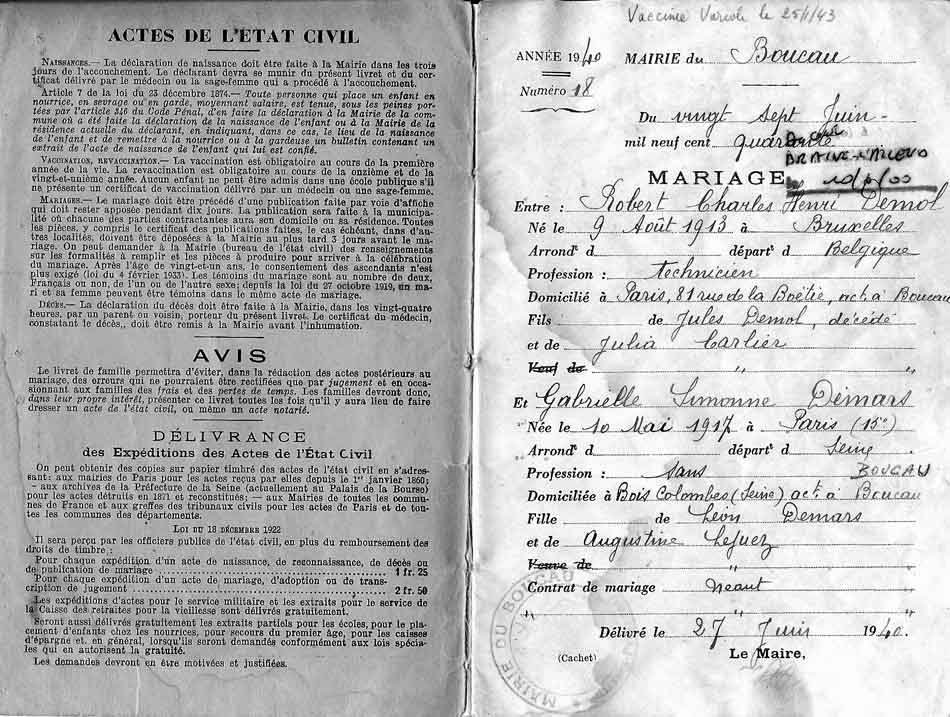 ACTES DE L'ÉTAT CIVIL
NAISSANCES.— La déclaration de naissance doit être faite à la Mairie dans les trois
jours de l'accouchement. Le déclarant devra se munir du présent livret et du cer-
tificat délivré par le médecin ou la sage-femme qui a procédé à l'accouchement.
Article 7 de la loi du 23 décembre 1874.— Toute personne qui place un enfant en
nourrice, en sevrage ou en garde, moyennant salaire, est tenue, sous les peines por-
tées par l'article 346 du Code Pénal, d'en faire la déclaration à la Mairie de la com-
mune où a été faite la déclaration de la naissance de l'enfant ou à la Mairie de la
résidence actuelle du déclarant, en indiquant, dans ce cas, le lieu de la naissance
de l'enfant et de remettre à la nourrice ou à la gardeuse un bulletin contenant un
extrait de l'acte de naissance de l'enfant qui lui est confié.
VACCINATION, REVACCINATION.— La vaccination est obligatoire au cours de la première
année de la vie. La revaccination est obligatoire au cours de la onzième et de la
vingt-et-unième année. Aucun enfant ne peut être admis dans une école publique s'il
ne présente un certificat de vaccination délivré par un médecin ou une sage-femme.
MARIAGES.— Le mariage doit être précédé d'une publication faite par voie d'affiche
qui doit rester apposée pendant dix jours. La publication sera faite à la municipa-
lité où chacune des parties contractantes aura son domicile ou sa résidence. Toutes
les pièces, y compris le certificat des publications faites, le cas échéant, dans d'au-
tres localités, doivent être déposées à la Mairie au plus tard 3 jours avant le ma-
riage. On peut demander à la Mairie (bureau de l'état civil) des renseignements
sur les formalités à remplir et les pièces à produire pour arriver à la célébration
du mariage. Après l'âge de vingt-et-un ans, le consentement des ascendants n'est
plus exigé (loi du 4 février 1933). Les témoins du mariage sont au nombre de deux,
Français ou non, de l'un ou de l'autre sexe; depuis la loi du 27 octobre 1919, un ma-
ri et sa femme peuvent être témoins dans le même acte de mariage.
DÉCÈS.— La déclaration du décès doit être faite à la Mairie, dans les vingt-quatre
heures, par un parent ou voisin, porteur du présent livret. Le certificat du médecin,
constatant le décès,, doit être remis à la Mairie avant l'inhumation.
AVIS
Le livret de famille permettra d'éviter, dans la rédaction des actes postérieurs au
mariage, des erreurs qui ne pourraient être rectifiées que par jugement et en occa-
sionnant aux familles des frais et des pertes de temps. Les familles devront donc,
dans leur propre intérêt, présenter ce livret toutes les fois qu'il y aura lieu de faire
dresser un acte de l'état civil, ou même un acte notarié.
DÉLIVRANCE
des Expéditions des Actes de l'État Civil
On peut obtenir des copies sur papier timbré des actes de l'état civil en s'adres-
sant: aux mairies de Paris pour les actes reçus par elles depuis le 1er janvier 1860;
- aux archives de la Préfecture de la Seine (actuellement au Palais de la Bourse)
pour les actes détruits en 1871 et reconstitués; — aux Mairies de toutes les commu-
nes de France et aux greffes des tribunaux civils pour les actes de Paris et de tou-
tes les communes des départements.
LOI DU 18 DÉCEMBRE 1922
Il sera perçu par les officiers publics de l'état civil, en plus du remboursement des
droits de timbre,:
Pour chaque expédition d'un acte de naissance, de reconnaissance, de décès ou
de publication de mariage ........ 1 fr. 25
Pour chaque expédition d'un acte de mariage, d'adoption ou de trans-
cription de jugement ........ 2 fr. 50
Les expéditions d'actes pour le service militaire et les extraits pour le service de
la Caisse des retraites pour la vieillesse sont délivrés gratuitement.
Seront aussi délivrés gratuitement les extraits partiels pour les écoles, pour le pla-
cement d'enfants chez les nourrices, pour secours du premier âge, pour les caisses
d'épargne et. en général, lorsqu'ils seront demandés conformément aux lois spécia-
les qui en autorisent la gratuité.
Les demandes devront en être motivées et justifiées.
Vaccinie Variole le 25/1/43
ANNÉE 1940 MAIRIE du Boucau
Numéro 18
Du vingt sept Juin
mil neuf cent quarante
BRAINE-L'ALLEUD
MARIAGE
Entre : Robert Charles Henri Demol
Né le 9 Août 1913 à Bruxelles
Arrondt d " départt d Belgique
Profession : technicien
Domicilié à Paris, 81 rue de la Boëtie, act. à Boucau
Fils de Jules Demol, décédé
et de Julia Carlier
Veuf de " "
Et Gabrielle Simonne Demars
Née le 10 Mai 1917 à Paris (15e)
Arrondt d " départt d Seine
BOUCAU
Profession : sans
Domiciliée à Bois Colombes (Seine) act. à Boucau
Fille de Léon Demars
et de Augustine Lefuez
Veuve de " "
Contrat de mariage néant
" " "
Délivré le 27 Juin 1940.
(Cachet) Le Maire,
MAIRIE DU BOUCAU